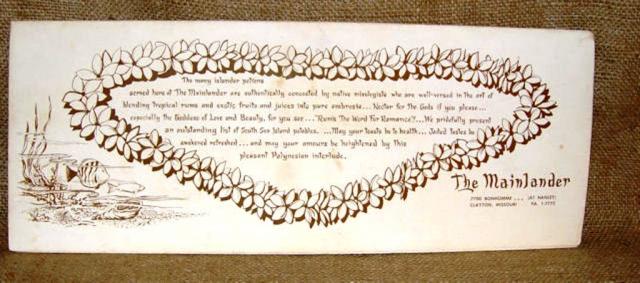 The many islander potions
served here at The Mainlander are authentically concocted by native mixologists who are well-versed in the art of
blending tropical rums and exotic fruits and juices into pure ambrosia... Nectar for the Gods if you please...
especially the Goddess of Love and Beauty, for you see... "Rum's The Word For Romance"!... We pridefully present
an outstanding list of South Sea Island potables... May your toasts be to health... Jaded tastes be
awakened refreshed... and may your amours be heightened by this
pleasant Polynesian interlude.
The Mainlander
7700 BONHOMME... (AT HANLEY)
CLAYTON, MISSOURI PA. 1-7775